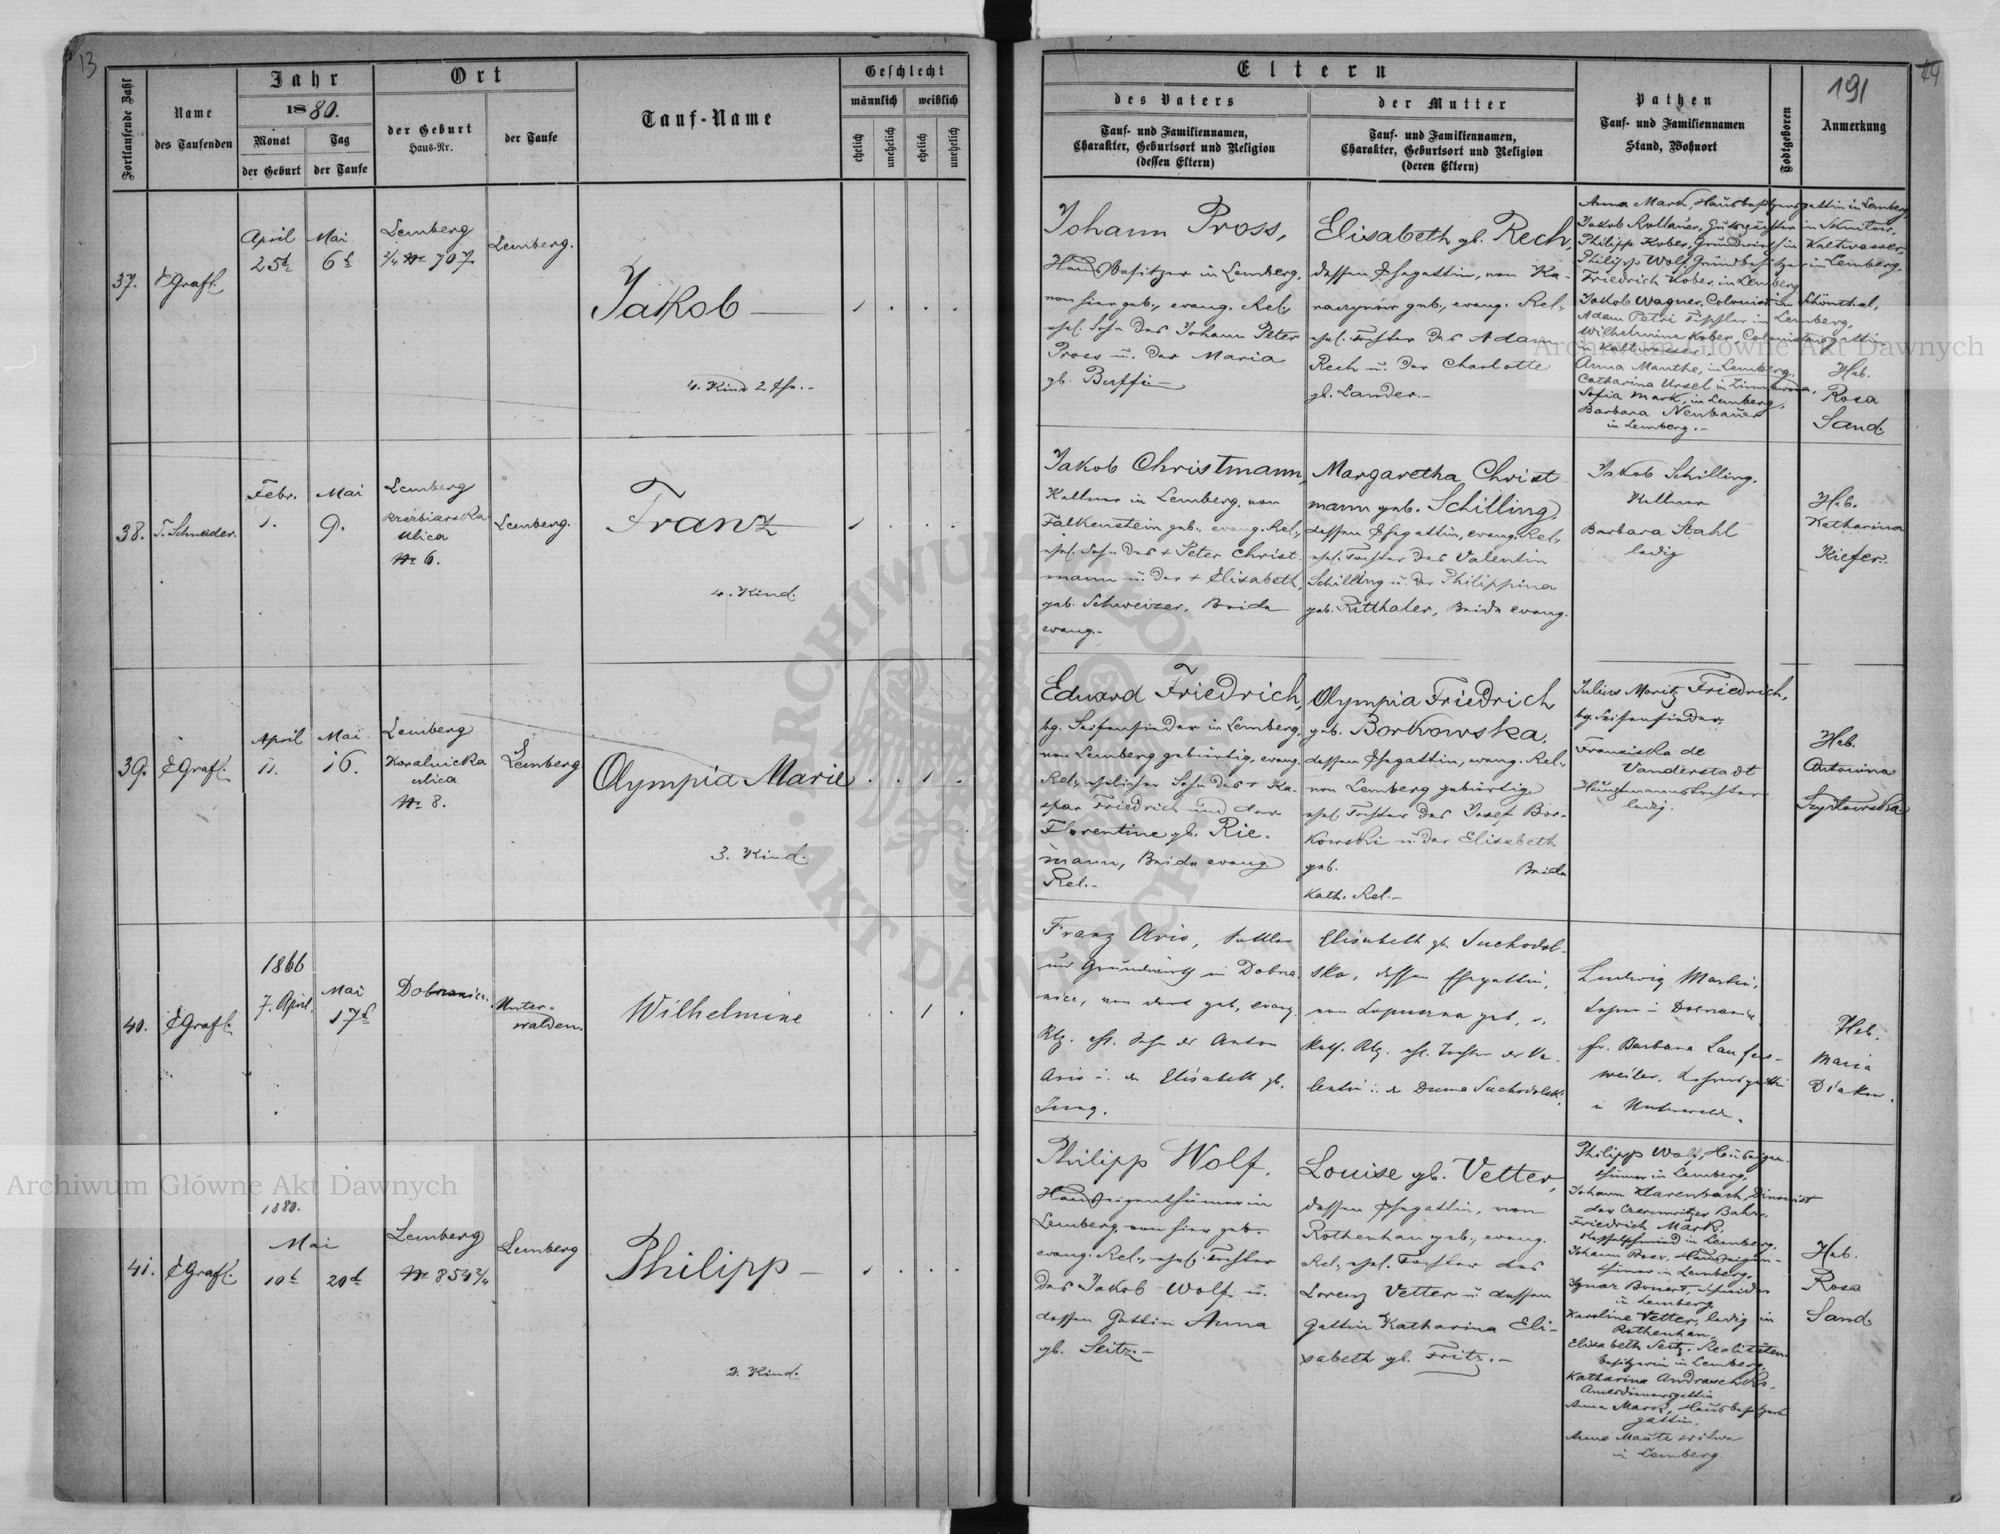 13
Fortlaufende Zahl
Name
des Taufenden
Jahr
1880.
Monat
Tag
der Geburt
der Taufe
Ort
der Geburt
Haus-Nr.
der Taufe
Tauf-Name
Geschlecht
männlich
weiblich
ehelich
unehelich
ehelich
unehelich
37.
EGrafl.
April
25t
Mai
6t
Lemberg
2/4 Nr 707.
Lemberg.
Jakob
4. Kind
38.
T. Schneider.
Febr.
1.
Mai
9.
Lemberg
ulica
Nr 6.
Lemberg.
Franz
4. Kind.
39.
EGrafl.
April
11.
Mai
16.
Lemberg
Koralnicka
ulica
Nr 8.
Lemberg
Olympia Marie
3. Kind.
40.
EGrafl.
1866
7. April.
Mai
17t
Dobrzanice.
Unter-
walden.
Wilhelmine
41.
EGrafl.
1880.
Mai
10t
20t
Lemberg
Nr 854 2/4
Lemberg
Philipp
2. Kind.
Eltern
des Vaters
Tauf- und Familiennamen,
Charakter, Geburtsort und Religion
(dessen Eltern)
der Mutter
Tauf- und Familiennamen,
Charakter, Geburtsort und Religion
(deren Eltern)
Pathen
Tauf- und Familiennamen
Stand, Wohnort
Todtgeboren
191
Anmerkung
Johann Pross,
Hausbesitzer in Lemberg,
von hier geb., evang. Rel.,
ehel. Sohn des Johann Peter
Pross u. der Maria
gb.
Elisabeth gb. Rech,
dessen Ehegattin, von
geb., evang. Rel.,
ehel. Tochter des Adam
Rech u. der Charlotte
gb. Lander.-
Anna Mark, Hausbesitzersgattin in Lemberg
Jakob
Philipp Kober, Grundwirt in Kaltwasser,
Philipp Wolf, Grundbesitzer in Lemberg.
Friedrich Kober, in Lemberg
Jakob Wagner, Colonist in Schönthal,
Adam Petri Tischler in Lemberg,
Wilhelmine Kober, Colonistensgattin
in Kaltwasser.
Anna Manthe, in Lemberg.
Catharina Ursel in
Sofia Mark, in Lemberg,
Barbara Neubauer
in Lemberg.-
Heb.
Rosa
Sand.
Jakob Christmann,
Kellner in Lemberg, von
Falkenstein geb., evang. Rel.,
ehel. Sohn des + Peter Christ-
mann u. der + Elisabeth,
geb. Schweizer, Beide
evang.-
Margaretha Christ-
mann geb. Schilling,
dessen Ehegattin, evang. Rel.,
ehel. Tochter des Valentin
Schilling u. der Philippina
geb. Ritthaler, Beide evang.
Jakob Schilling.
Kellner
Barbara Stahl
ledig
Heb.
Katharina
Kiefer.
Eduard Friedrich,
bg. Seifensieder in Lemberg,
von Lemberg gebürtig, evang.
Rel., ehelicher Sohn des + Ka-
spar Friedrich und der
Florentine gb. Rie-
mann, Beide evang
Rel.-
Olympia Friedrich
geb. Borkowska,
dessen Ehegattin, evang. Rel.,
von Lemberg gebürtig
ehel. Tochter des Josef Bor-
kowski u. der Elisabeth
geb. Beide
Kath. Rel.-
Julius Moritz Friedrich,
bg. Seifensieder.
Franciska de
Vanderstadt
Hauptmannstochter
ledig.
Heb.
Antonina
Szydłowska
Franz Aris, Sattler
und Grundwirth in Dobrza-
nice, von dort geb., evang.
Rlg. ehl. Sohn des Anton
Aris u. der Elisabeth gb.
Jung.
Elisabeth gb. Suchodol-
ska, dessen Ehegattin,
von Lopuszna geb., r.
kath. Rlg. ehl. Tochter des Va-
lentin u. der Duma Suchodolski.
Ludwig Marki,
Lehrer in Dobrzanice
fr. Barbara Laufers-
weiler, Lehrersgattin
in Unterwalden.
Heb.
Maria
Diakow.
Philipp Wolf,
Hauseigenthümer in
Lemberg, von hier geb.
evang. Rel., ehel. Tochter
des Jakob Wolf u.
dessen Gattin Anna
gb. Seitz.-
Louise gb. Vetter,
dessen Ehegattin, von
Rothenhan geb., evang.
Rel., ehel. Tochter des
Lorenz Vetter u. dessen
Gattin Katharina Eli-
sabeth gb. Fritz.-
Philipp Wolf, Hauseigen-
thümer in Lemberg,
Johann Klarenbach,
der Czernowitzer Bahn,
Friedrich Mark,
Kesselschmied in Lemberg,
Johann Pross, Hauseigen-
thümer in Lemberg,
Ignaz Bonert, Schneider
in Lemberg,
Karoline Vetter, ledig in
Rothenhan,
Elisabeth Seitz, Realitäten-
besitzerin in Lemberg,
Katharina Andraschko,
Amtsdienersgattin
Anna Mark, Hausbesitzers-
gattin.
Anna Maute Witwe
in Lemberg.
Heb.
Rosa
Sand.
Archiwum Główne Akt Dawnych
Archiwum Główne Akt Dawnych
ARCHIWUM GŁÓWNE AKT DAWNYCH